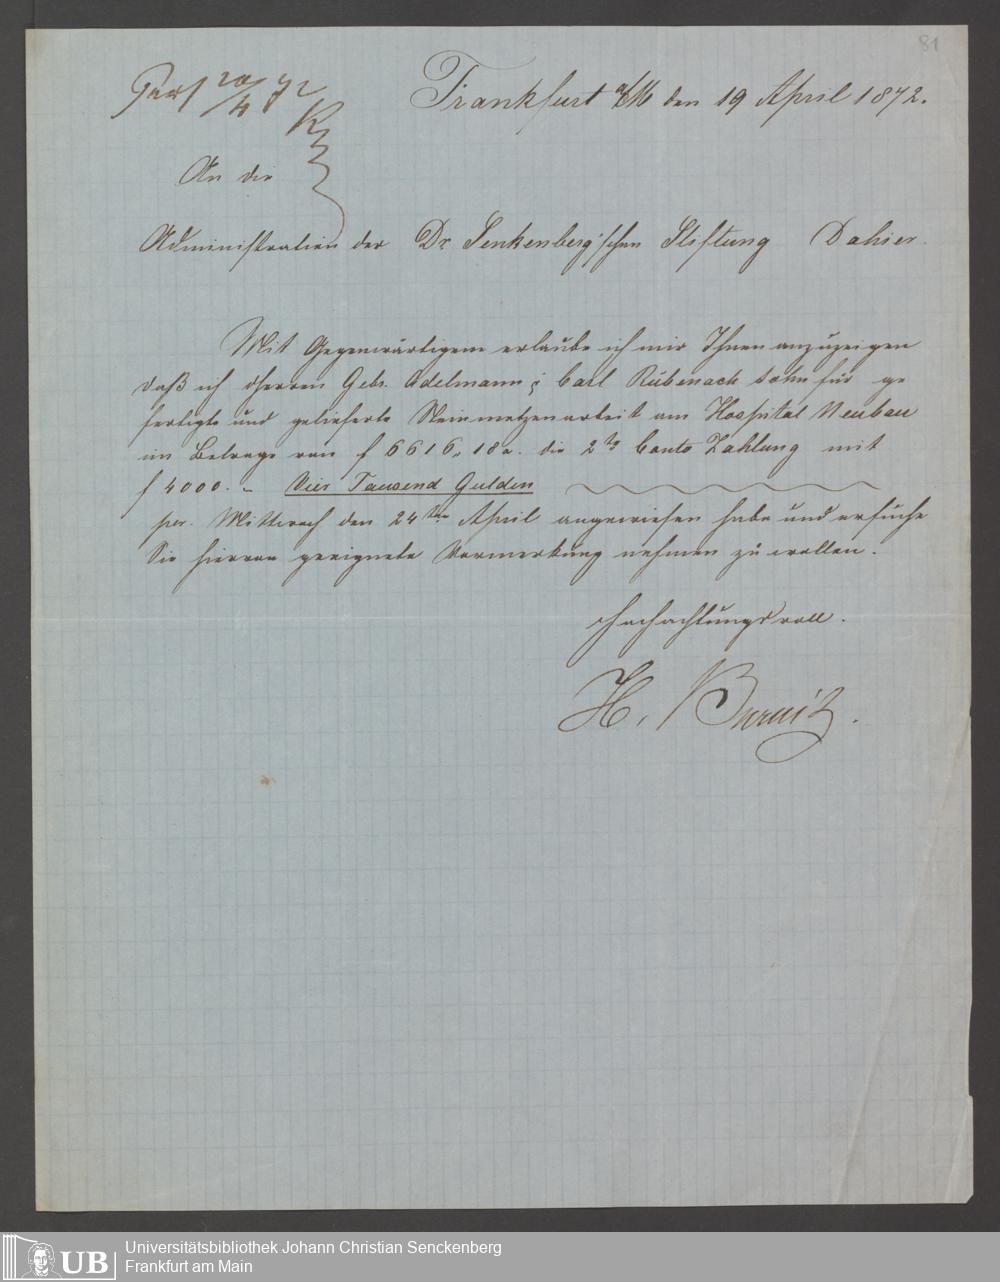 81
20/4 72
Frankfurt a/M den 19 April 1872.
An die
Administration der Dr Senkenberg'schen Stiftung Dahier.
Mit Gegenwärtigem erlaube ich mir Ihnen anzuzeigen
daß ich Herren Gebr. Adelmann & Carl Rübenach Sohn für ge
fertigte und gelieferte Steinmetzenarbeit am Hospital Neubau
im Betrage von f 6616. 18 x. die 2te Conto Zahlung mit
f 4000. „ Vier Tausend Gulden
per. Mittwoch den 24ten April angewiesen habe und ersuche
Sie hiervon geeignete Vormerkung nehmen zu wollen.
Hochachtungsvoll.
H. Burnitz.
UB
Universitätsbibliothek Johann Christian Senckenberg
Frankfurt am Main